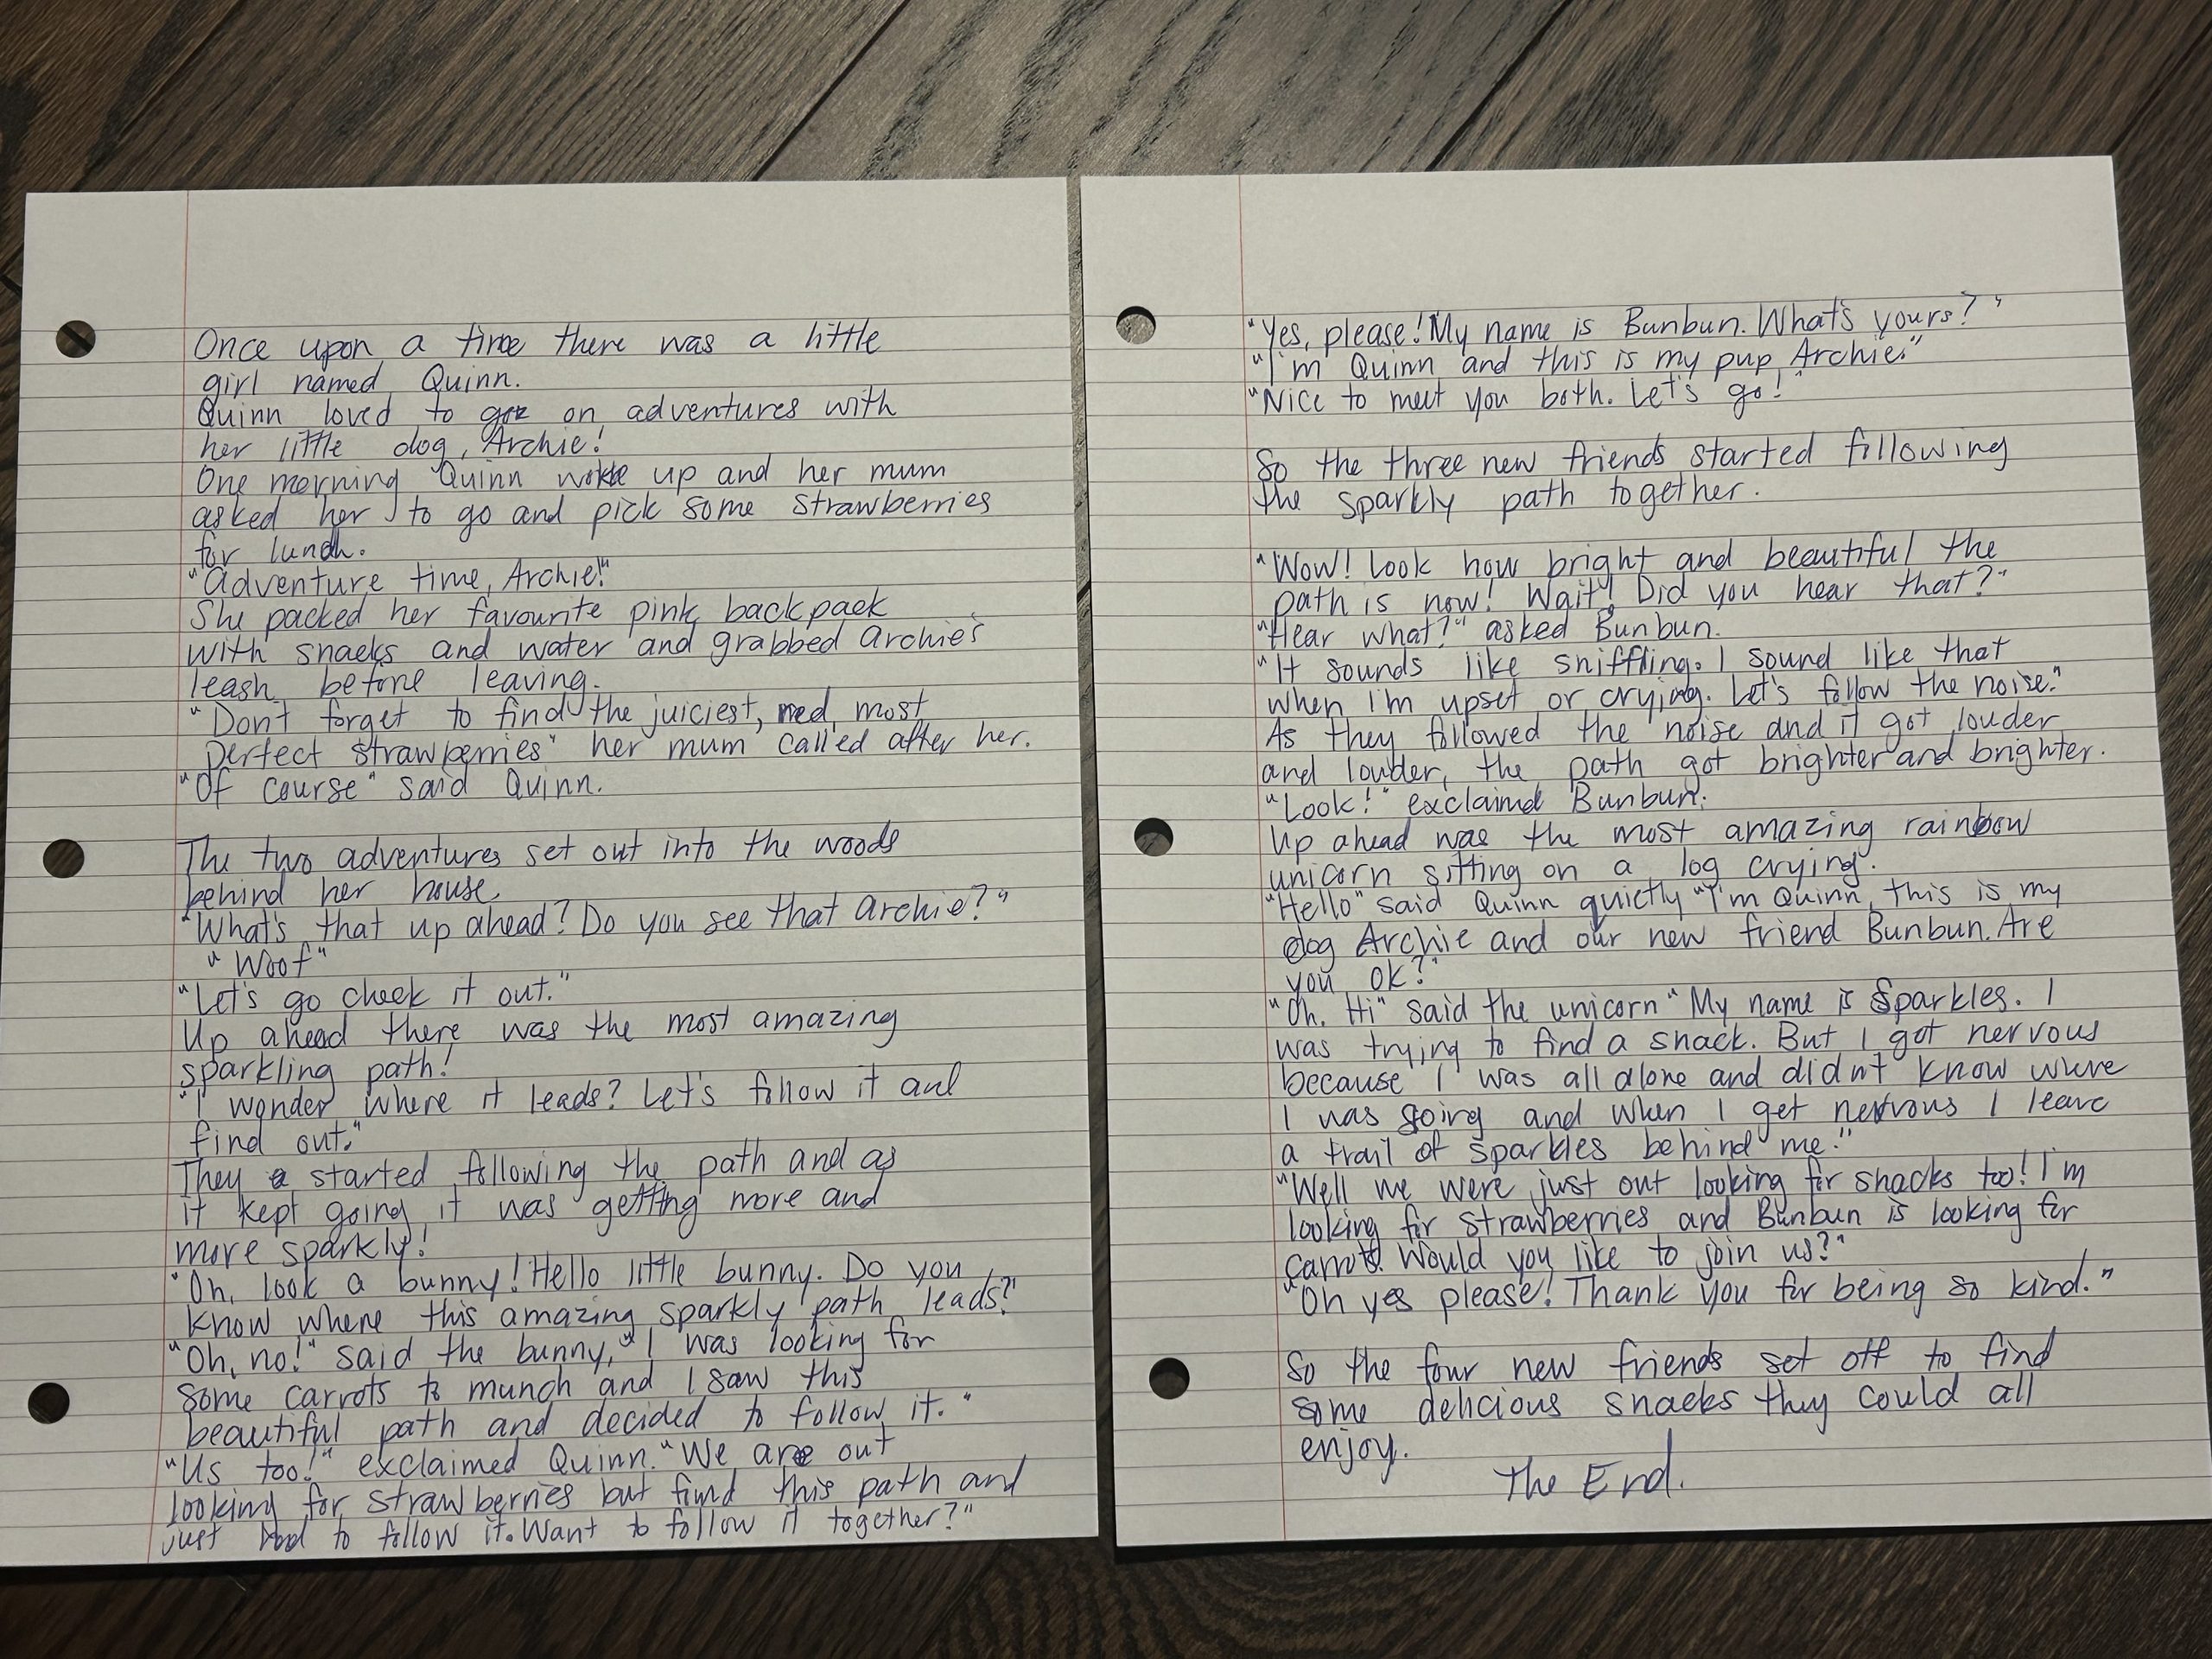 Once upon a time there was a little
girl named Quinn.
Quinn loved to go on adventures with
her little dog, Archie!
One morning Quinn woke up and her mum
asked her to go and pick some strawberries
for lunch.
"Adventure time, Archie!"
She packed her favourite pink backpack
with snacks and water and grabbed Archie's
leash before leaving.
"Don't forget to find the juiciest, red, most
perfect strawberries" her mum called after her.
"Of course" said Quinn.
The two adventures set out into the woods
behind her house.
"What's that up ahead? Do you see that Archie?"
"Woof"
"Let's go check it out."
Up ahead there was the most amazing
sparkling path!
"I wonder where it leads? Let's follow it and
find out."
They started following the path and as
it kept going it was getting more and
more sparkly!
"Oh, look a bunny! Hello little bunny. Do you
know where this amazing sparkly path leads?"
"Oh, no!" said the bunny, "I was looking for
some carrots to munch and I saw this
beautiful path and decided to follow it."
"Us too!" exclaimed Quinn. "We are out
looking for strawberries but find this path and
just had to follow it. Want to follow it together?"
"Yes, please! My name is Bunbun. What's yours?"
"I'm Quinn and this is my pup Archie."
"Nice to meet you both. Let's go!"
So the three new friends started following
the sparkly path together.
"Wow! Look how bright and beautiful the
path is now! Wait! Did you hear that?"
"Hear what?" asked Bunbun.
"It sounds like sniffling. I sound like that
when I'm upset or crying. Let's follow the noise."
As they followed the noise and it got louder
and louder, the path got brighter and brighter.
"Look!" exclaimed Bunbun.
Up ahead was the most amazing rainbow
unicorn sitting on a log crying.
"Hello" said Quinn quietly "I'm Quinn, this is my
dog Archie and our new friend Bunbun. Are
you ok?"
"Oh. Hi" said the unicorn "My name is Sparkles. I
was trying to find a snack. But I got nervous
because I was all alone and didn't know where
I was going and when I get nervous I leave
a trail of sparkles behind me."
"Well we were just out looking for snacks too! I'm
looking for strawberries and Bunbun is looking for
carrots. Would you like to join us?"
"Oh yes please! Thank you for being so kind."
So the four new friends set off to find
some delicious snacks they could all
enjoy.
The End.